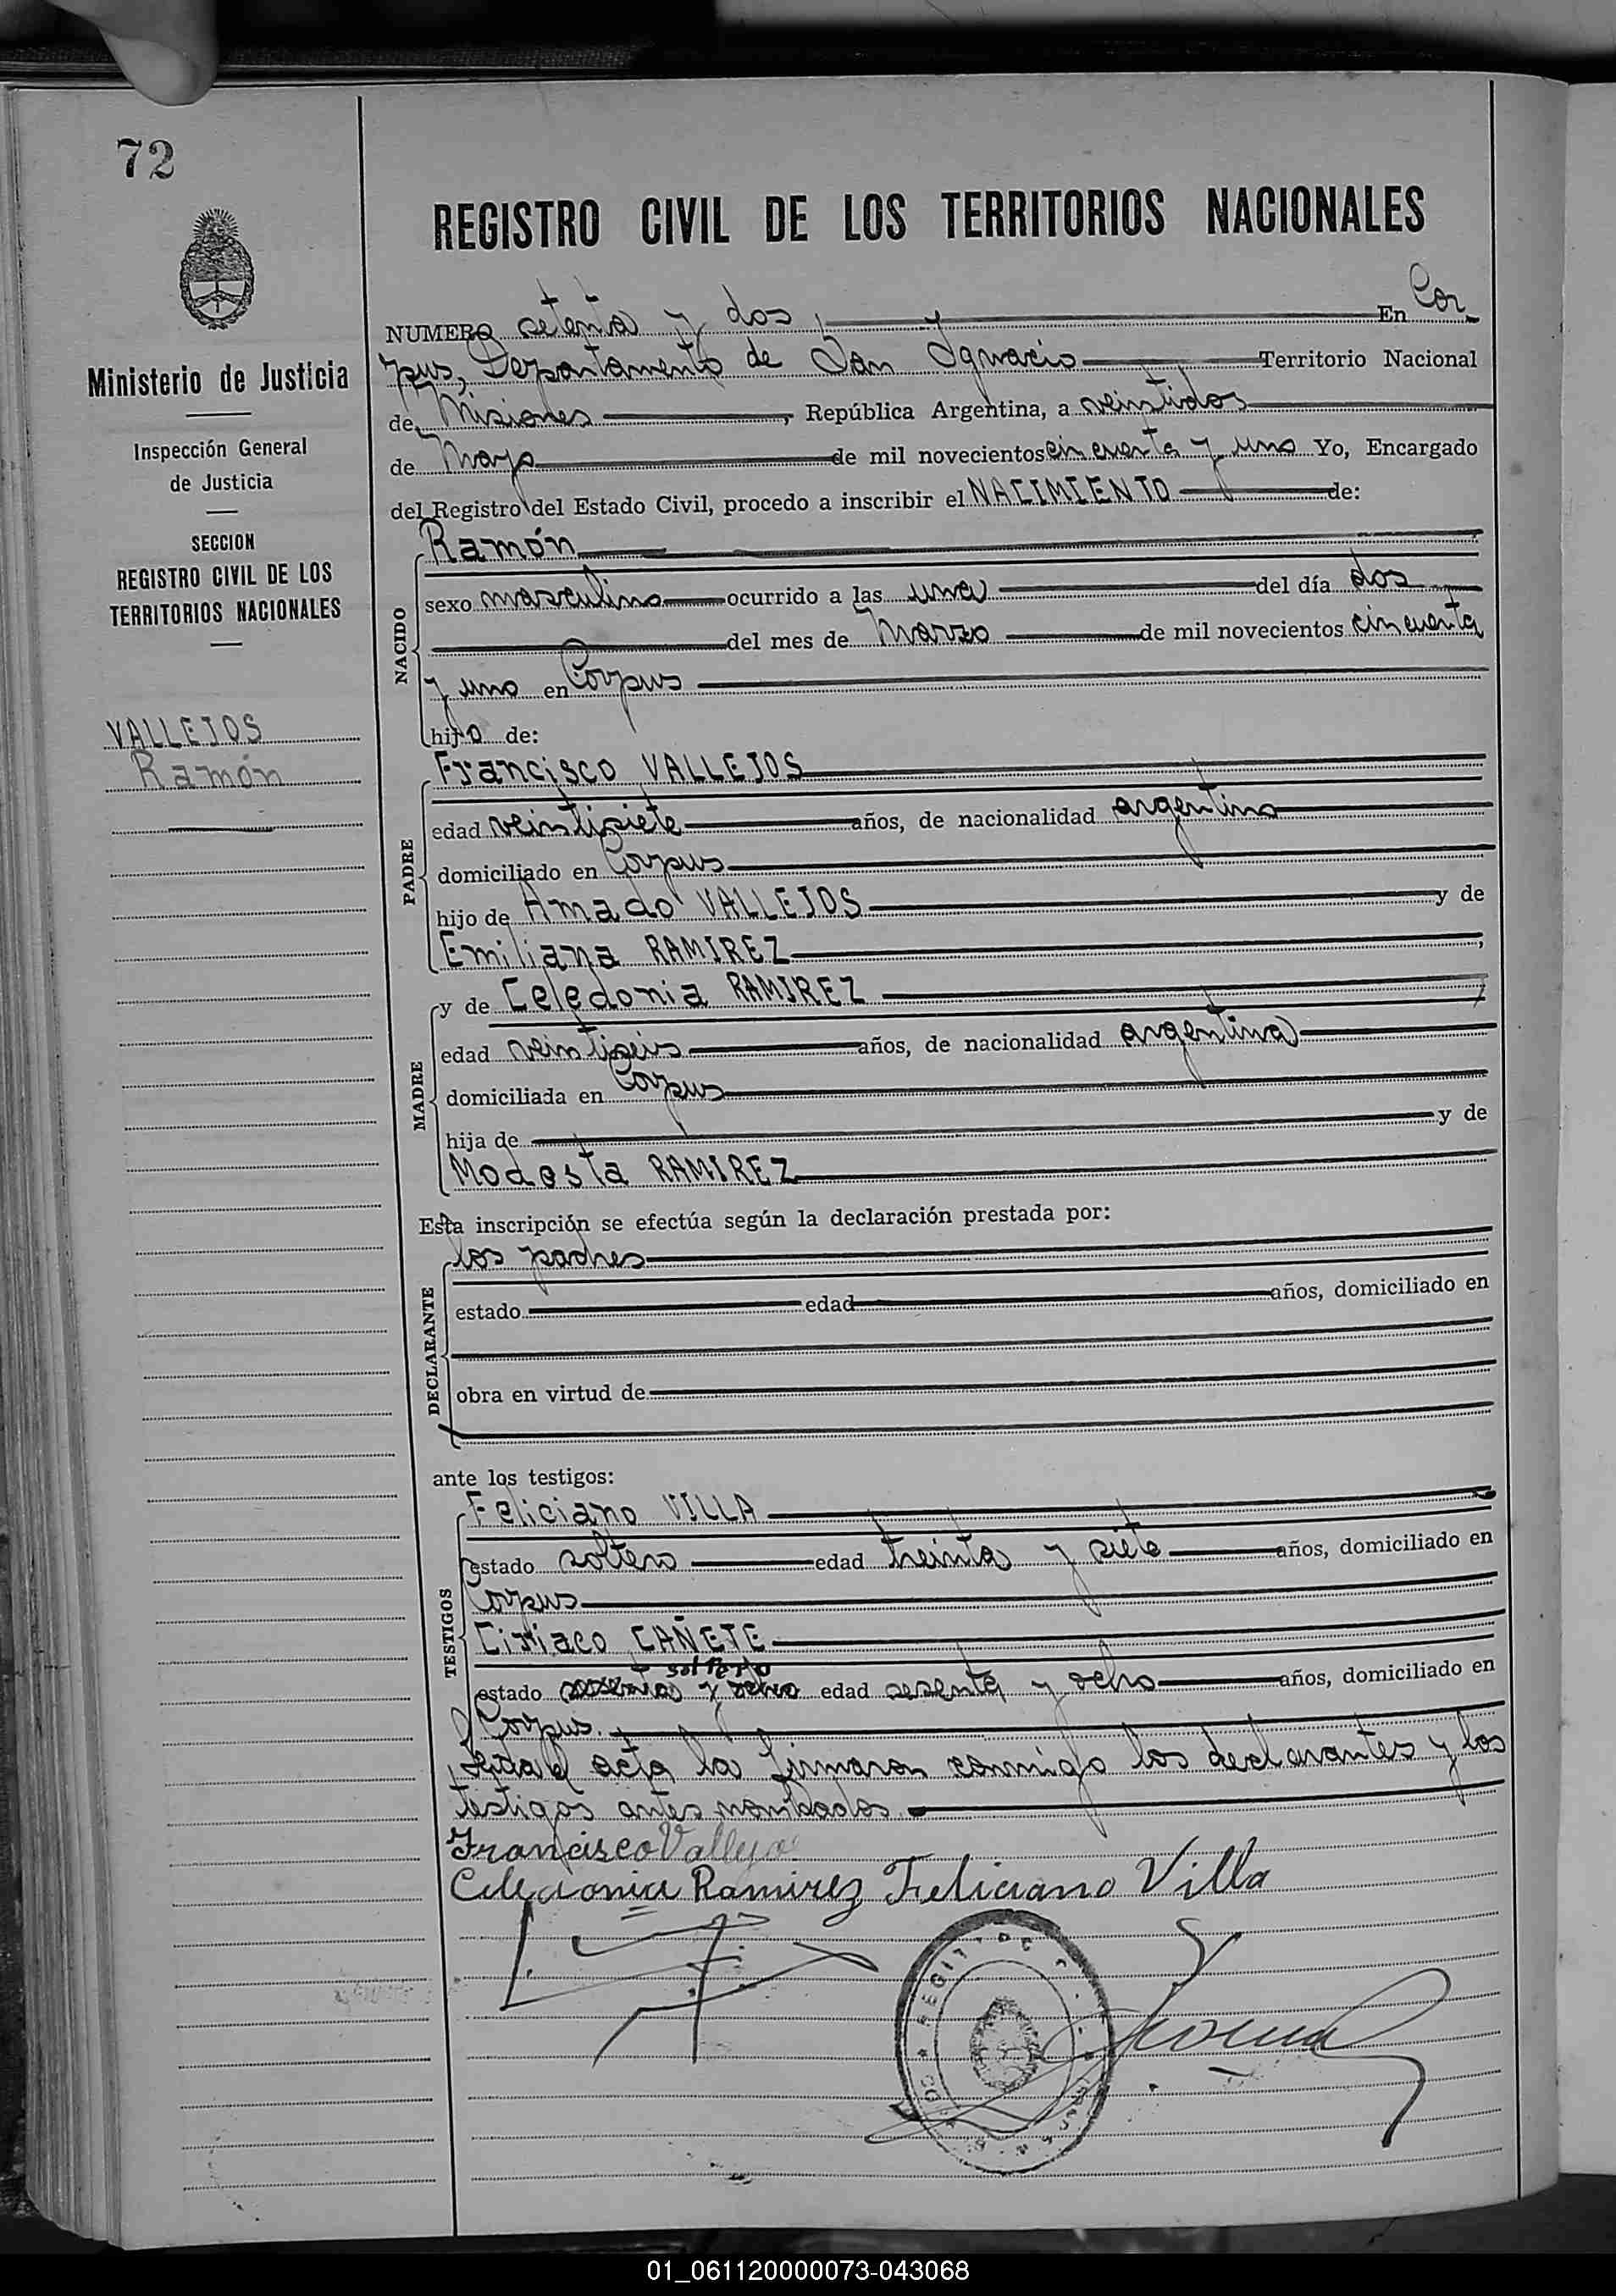 72
REGISTRO CIVIL DE LOS TERRITORIOS NACIONALES
Ministerio de Justicia
Inspección General
de Justicia
SECCION
REGISTRO CIVIL DE LOS
TERRITORIOS NACIONALES
VALLEJOS
Ramón
NUMERO setenta y dos, En Cor-
pus, Departamento de San Ignacio Territorio Nacional
de Misiones, República Argentina, a veintidos
de Mayo de mil novecientos cincuenta y uno Yo, Encargado
del Registro del Estado Civil, procedo a inscribir el NACIMIENTO de:
NACIDO
Ramón
sexo masculino ocurrido a las una del día dos
del mes de Marzo de mil novecientos cincuenta
y uno en Corpus
hijo de:
PADRE
Francisco VALLEJOS
edad veintisiete años, de nacionalidad argentino
domiciliado en Corpus
hijo de Amado VALLEJOS y de
Emiliana RAMIREZ;
MADRE
y de Celedonia RAMIREZ
edad veintiséis años, de nacionalidad argentina
domiciliada en Corpus
hija de y de
Modesta RAMIREZ
Esta inscripción se efectúa según la declaración prestada por:
DECLARANTE
los padres
estado edad años, domiciliado en
obra en virtud de
ante los testigos:
TESTIGOS
Feliciano VILLA
estado soltero edad treinta y siete años, domiciliado en
Corpus
Ciriaco CAÑETE
soltero
estado sesenta y ocho edad sesenta y ocho años, domiciliado en
Corpus.
acta la firmaron conmigo los declarantes y los
testigos antes nombados.
Francisco Vallejo
Celedonia Ramirez Feliciano Villa
01_061120000073-043068